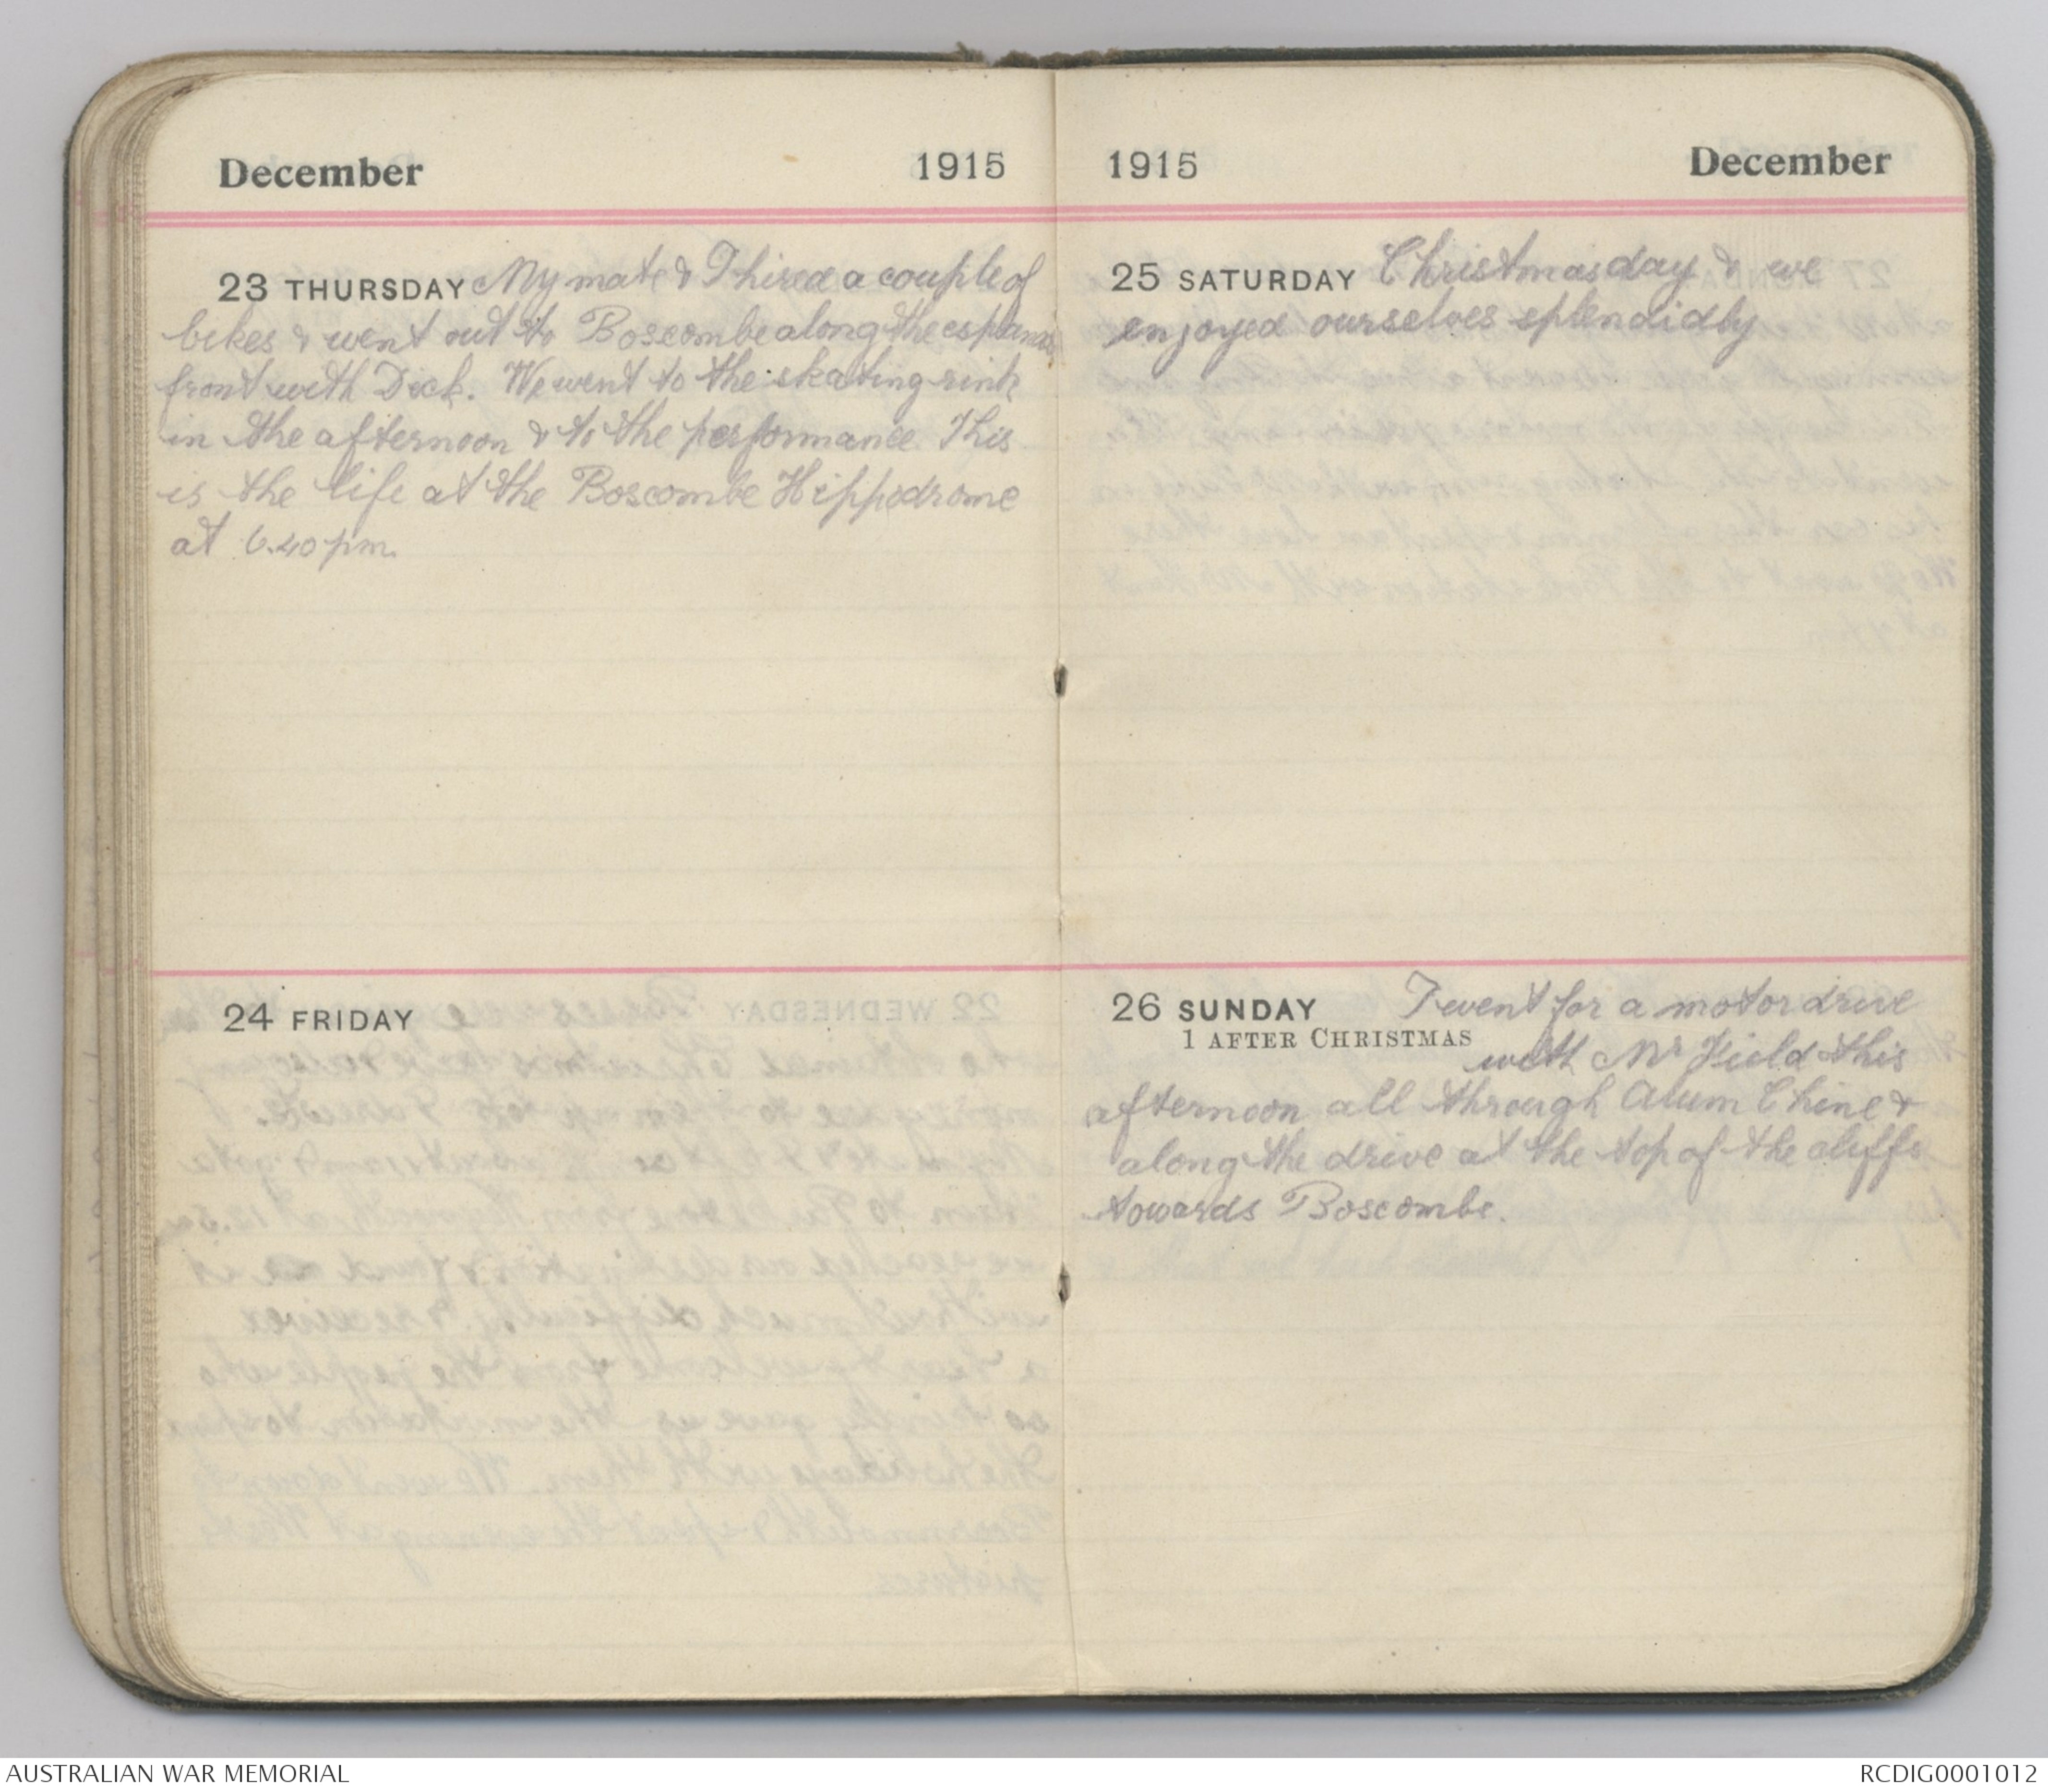 December 1915
23 THURSDAY My mate & I hired a couple of
bikes & went out to Boscombe along the
front with Dick. We went to the skating rink
in the afternoon & to the performance. This
is the life at the Boscombe Hippodrome
at 6.40 pm.
24 FRIDAY
1915 December
25 SATURDAY Christmas day & we
enjoyed ourselves splendidly
26 SUNDAY I went for a motor drive
1 AFTER CHRISTMAS
with Mr Field this
afternoon all through Alum Chine &
along the drive at the top of the cliffs
towards Boscombe.
AUSTRALIAN WAR MEMORIAL
RCDIG0001012